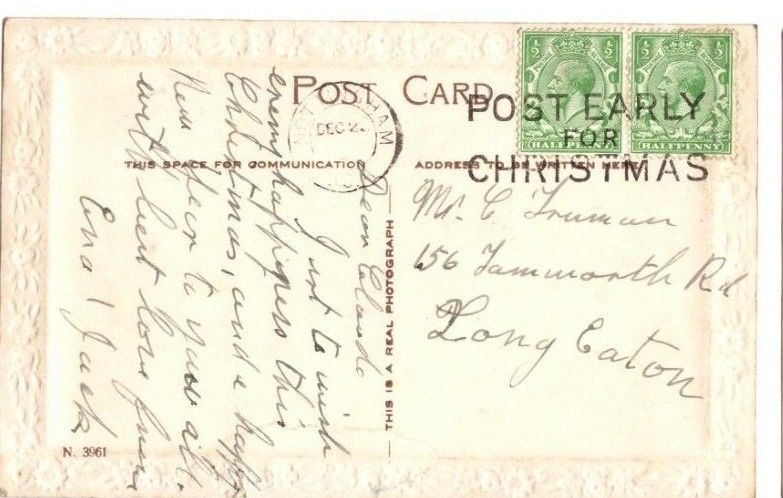 POST CARD
THIS SPACE FOR COMMUNICATION
ADDRESS TO BE WRITTEN HERE
THIS IS A REAL PHOTOGRAPH
N. 3961
½ ½
HALFPENNY
½ ½
HALFPENNY
POST EARLY
FOR
CHRISTMAS
HAM
DEC
Mr. C Truman
156 Tammworth Rd
Long Eaton
Dear Claude
Just to wish
happiness this
Christmas, and a happy
New year to you all.
with best love from
Ena & Jack